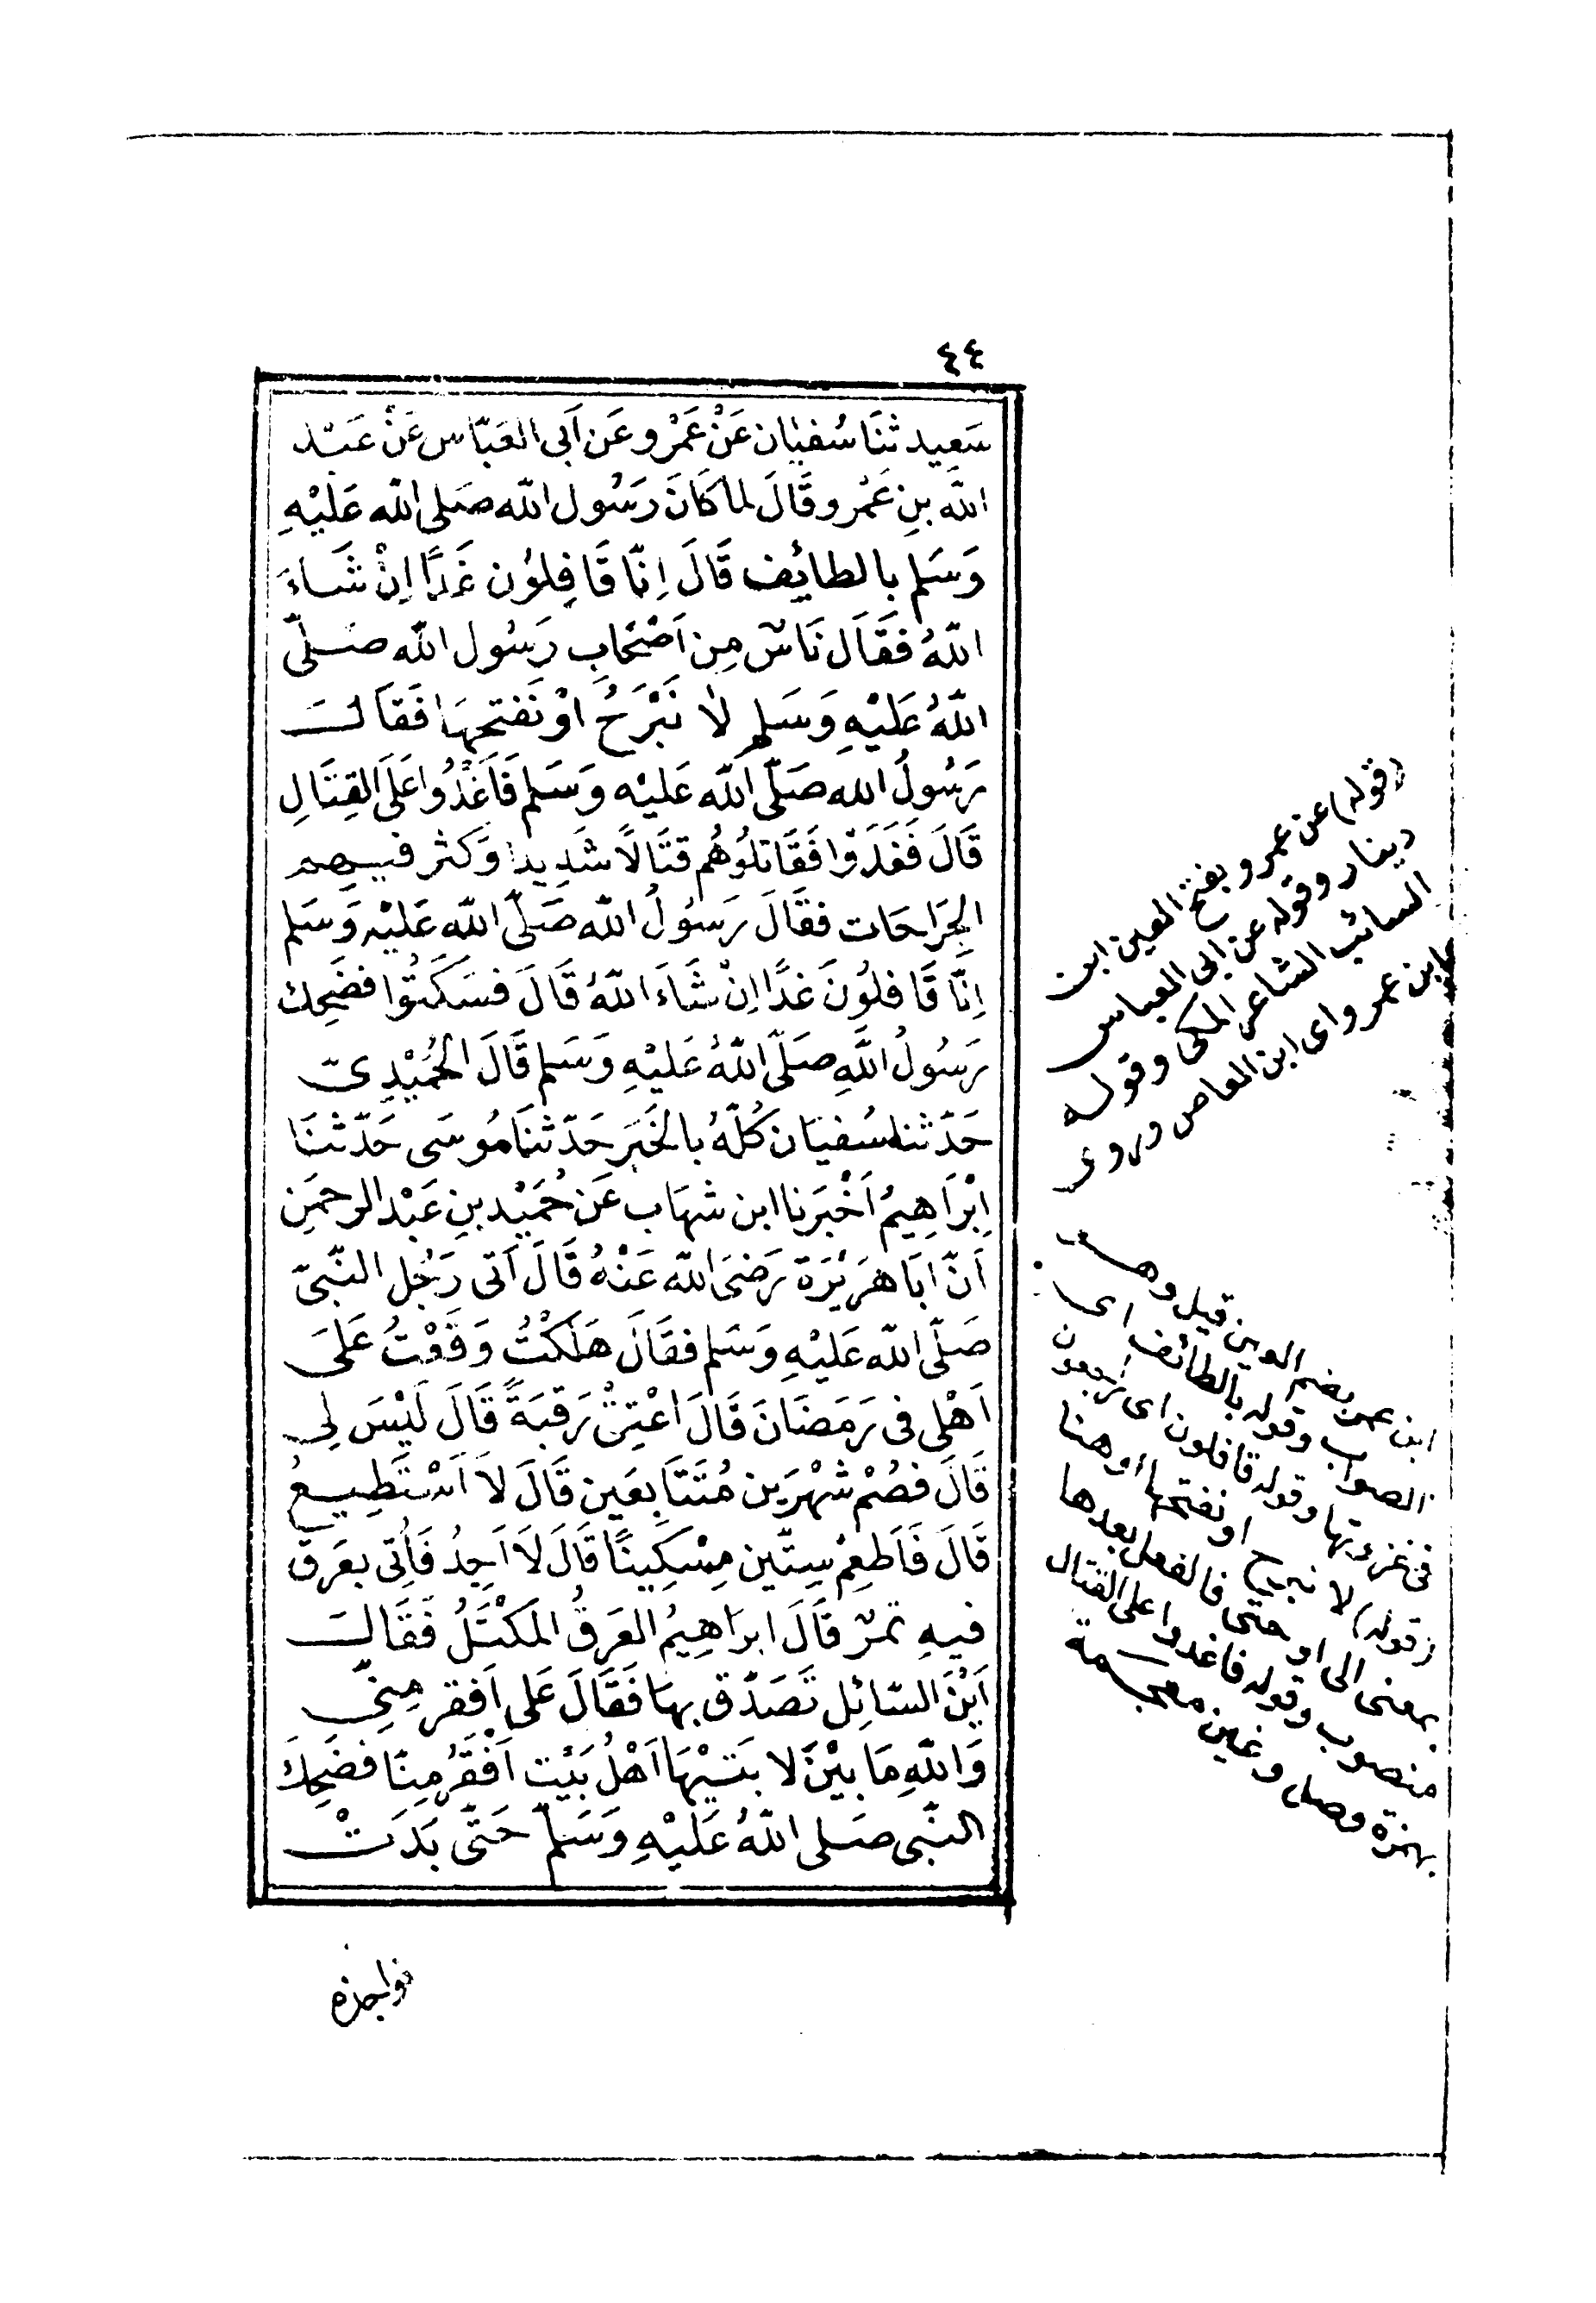 ٤٤
سَعِيد ثنَا سُفيٰان عَنْ عَمْرو عَن اَبى العَبَّاس عَنْ عَبْد
الله بنِ عَمْر و قَالَ لما كَانَ رَسُول الله صَلى الله عَلَيْهِ
وَسَلم بالطائِف قَالَ اِنَّا قَافِلوُن غَدًا اِنْ شَاءَ
اللهُ فَقَال نَاسٌ مِن اَصْحَابِ رَسُول الله صَلّى
اللهُ عَلَيْهِ وَسَلم لاٰ نَبْرَحُ اوْ نَفتحهَا فَقَالَ
رَسُولُ الله صَلّى الله عَليْه وَسَلم فَاَغْدُوا عَلَى القِتَالِ
قَالَ فَغَدَوْا فَقَاتلُوهُم قتَالاً شَدِيدا وَكثر فيهم
الجِرَاحَات فقَالَ رَسُولُ الله صَلّى الله عَليْه وَسَلم
اِنَّا قَافلوُنَ غَدًا اِنْ شَاءَ اللهُ قَالَ فَسَكَتُوا فضَحِك
رَسُولُ اللهِ صَلّى اللهُ عَليْهِ وَسَلم قَالَ الحُمَيْدِىّ
حَدّثنا سُفيَان كُلّهُ بالخَبَر حَدّثنَا مُوسَى حَدّثنَا
اِبْرَاهِيمُ اَخْبَرنا ابن شهَاب عَن حُمَيْد بنِ عَبْد الرحمَنِ
اَنّ ابَا هرَيْرَة رَضىَ الله عَنْهُ قَالَ اَتى رَجُل النّبىّ
صَلّى الله عَليْهِ وَسَلم فقَالَ هَلَكْتُ وَقَعْتُ عَلىَ
اَهْلى فى رَمَضَانَ قَالَ اعْتِقْ رَقبَةً قَالَ لَيْسَ لِى
قَالَ فصُمْ شهْرَين مُتَتَابعَين قَالَ لاَ اَسْتَطِيعُ
قَالَ فَاَطعِمْ سِتّين مِسْكِينًا قَالَ لاَ اَجِدُ فَاُتى بعَرَق
فيهِ تمرٌ قَالَ ابرَاهِيمُ العَرَقُ المَكْتَلُ فَقَالَ
اَيْنَ السّائِل تَصَدّق بهَا فَقَالَ عَلى اَفقر مِنِّى
وَاللهِ مَا بَيْنَ لا بَتيْهَا اَهْلُ بَيْت اَفْقَرُ مِنّا فضَحِكَ
النّبى صَلى اللهُ عَلَيْهِ وَسَلّم حَتّى بَدَتْ
نواجذه
(قوله) عن عمرو بفتح العين ابن
دينار وقوله عن ابى العباس
السائب الشاعر المكى وقوله
ابن عمرو اى ابن العاص وروى
ابن عمر بضم العين قيل وهو
الصواب وقوله بالطائف اى
فى غزوتها وقوله قافلون اى نرجعون
(قوله) لا نبرح او نفتحها او هنا
بمعنى الى او حتى فالفعل بعدها
منصوب وقوله فاغدوا على القتال
بهمزة وصل وغين معجمة